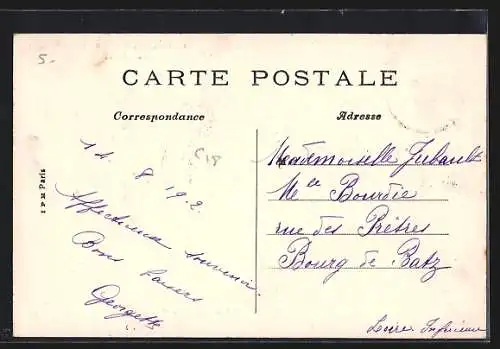 5.
CARTE POSTALE
Correspondance
Adresse
14 8 1912
C18
Affectueux souvenir.
Bons baisers
Georgette
Mademoiselle Jubault
Mlle Bourdie
rue des Prêtres
Bourg de Batz
Loire Inférieure